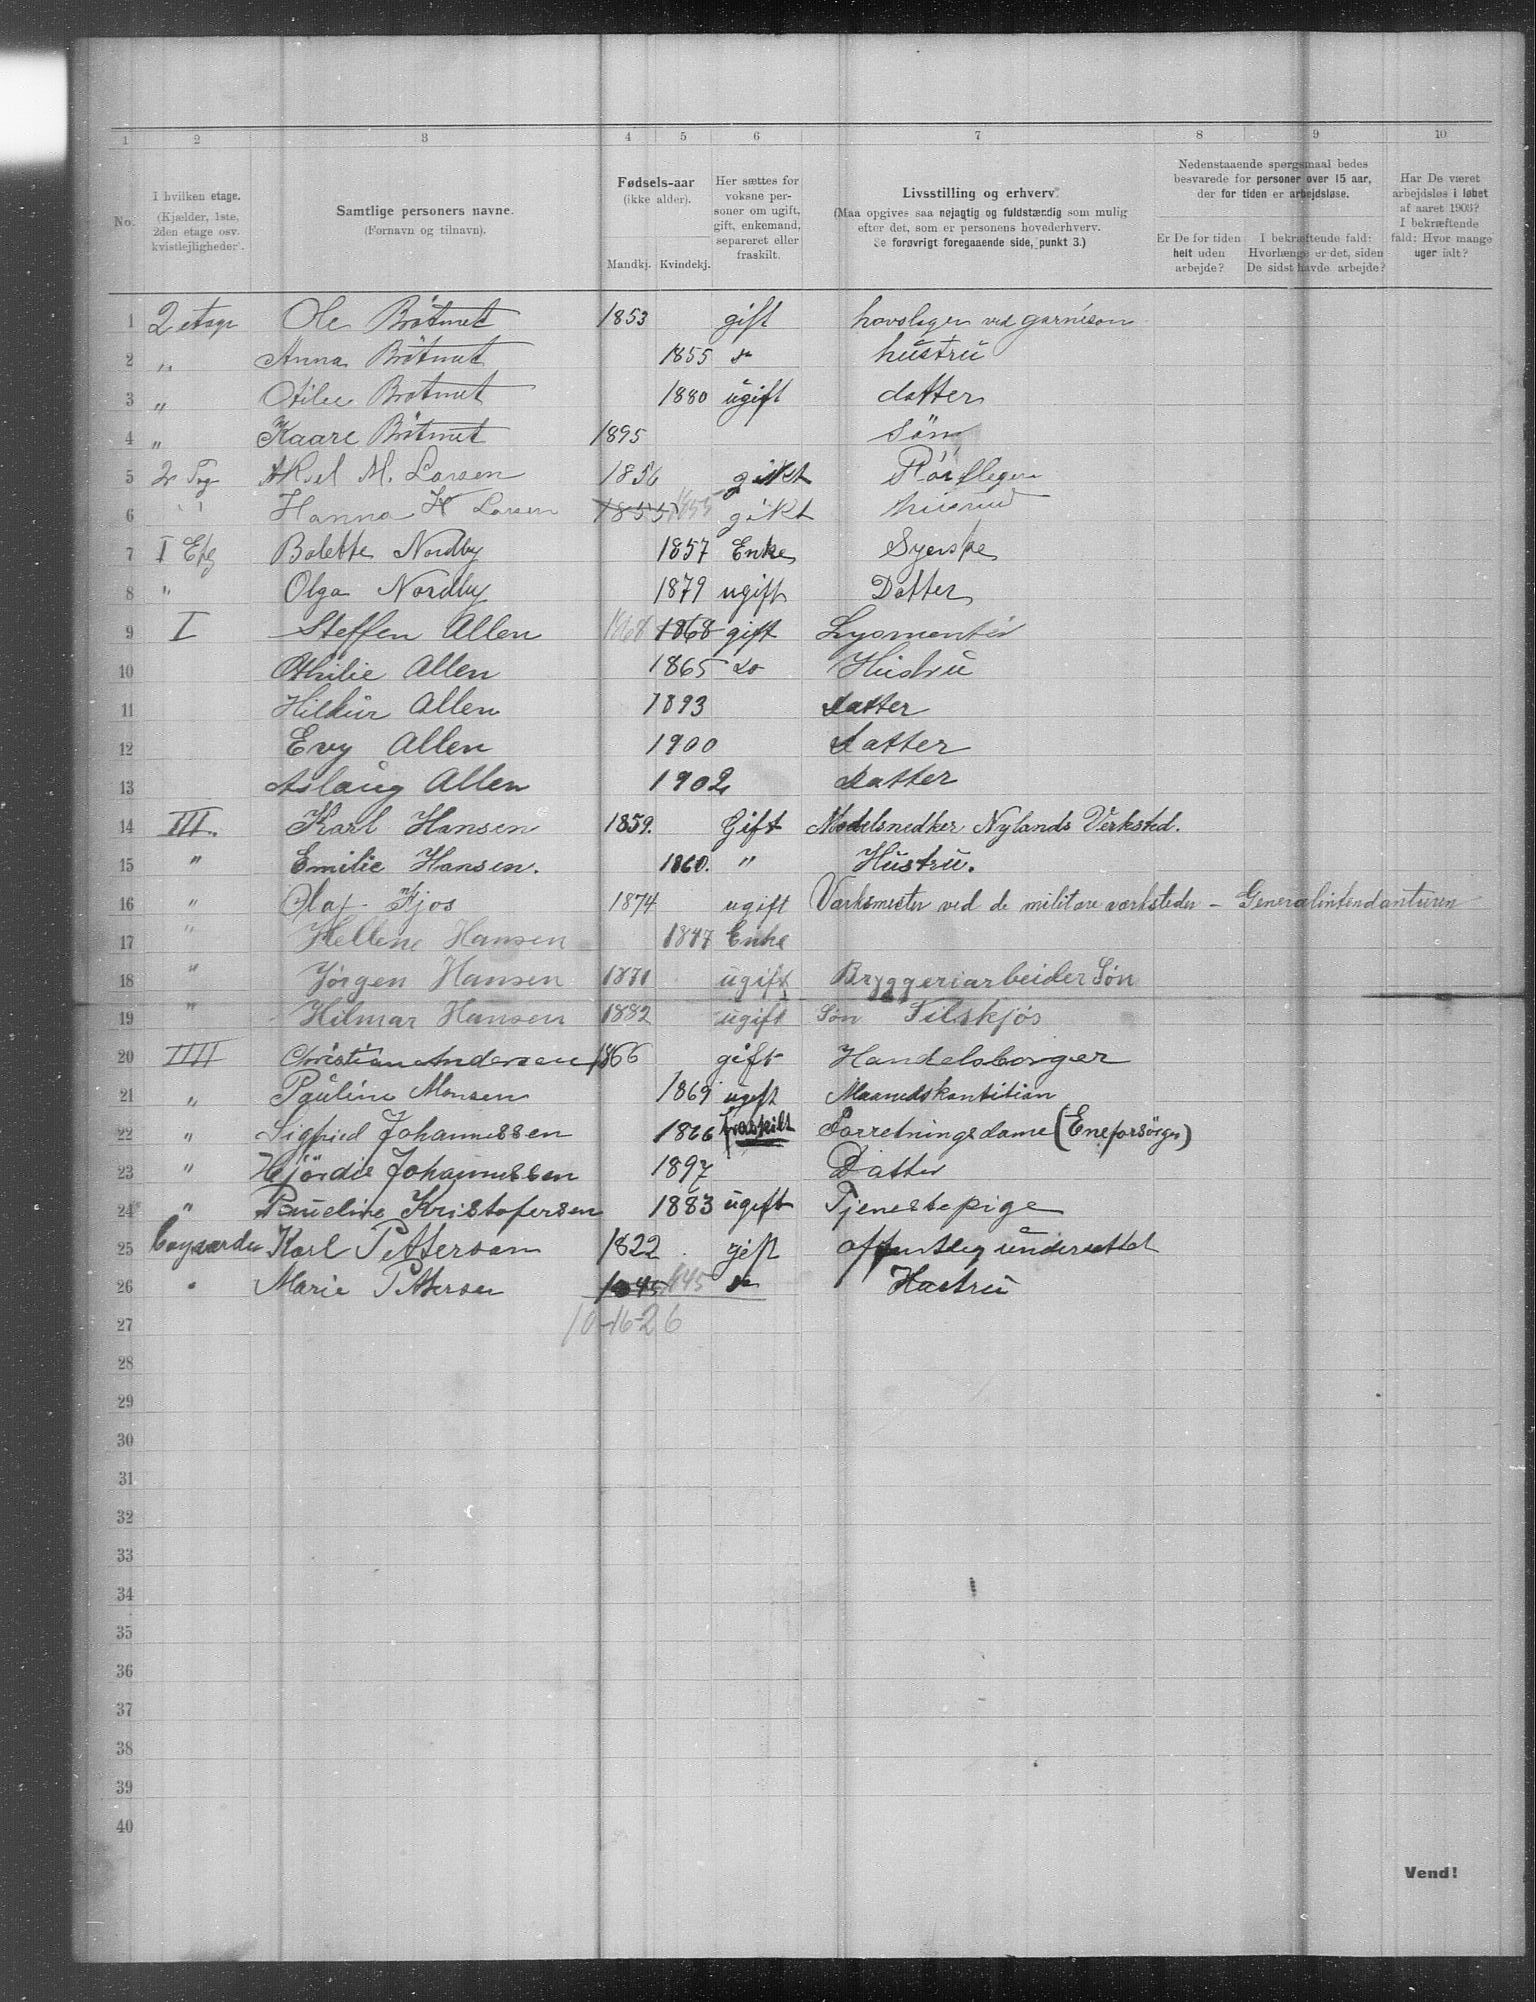 1 2 3 4 5 6 7 8 9 10
No.
I hvilken etage.
(Kjælder, 1ste,
2den etage osv.
kvistlejligheder.
Samtlige personers navne.
(Fornavn og tilnavn).
Fødsels-aar
(ikke alder).
Mandkj. Kvindekj.
Her sættes for
voksne per-
soner om ugift,
gift, enkemand,
separeret eller
fraskilt.
Livsstilling og erhverv.
(Maa opgives saa nøjagtig og fuldstændig som mulig
efter det, som er personens hovederhverv.
Se forøvrigt foregaaende side, punkt 3.)
Nedenstaaende spørgsmaal bedes
besvarede for personer over 15 aar,
der for tiden er arbejdsløse.
Er De for tiden
helt uden
arbejde?
I bekræftende fald:
Hvorlænge er det, siden
De sidst havde arbejde?
Har De været
arbejdsløs i løbet
af aaret 1903?
I bekræftende
fald: Hvor mange
uger ialt?
1 2 etage Ole Bråtmet 1853 gift hovslager ved garnison
2 " Anna Bråtmet 1855 do hustru
3 " Bråtmet 1880 ugift datter
4 " Kaare Bråtmet 1895 søn
5 2 Aksel M. Larsen 1856 gikt
6 " Hanna H Larsen 1855 1855 gikt hustru
7 I Etg Bolette Nordby 1857 Enke Syerske
8 " Olga Nordby 1879 ugift Datter
9 I Steffen Allen 1868 1868 gift
10 Othilie Allen 1865 do Hustru
11 Hildur Allen 1893 datter
12 Evy Allen 1900 datter
13 Aslaug Allen 1902 datter
14 III. Karl Hansen 1859. Gift Modelsnedker Nylands Verksted.
15 " Emilie Hansen. 1860. " Hustru.
16 " Olaf Fjos 1874 ugift Værksmester ved de militære værksteder – Generalintendanturen
17 " Hellene Hansen 1847 Enke
18 " Jørgen Hansen 1871 ugift Bryggeriarbeider Søn
19 " Hilmar Hansen 1882 ugift Søn Tilskjøs
20 IIII Christian Andersen 1866 gift Handelsborger
21 " Pauline Monsen 1869 ugift
22 " Sigfried Johannessen 1866 fraskilt Forretningsdame (Eneforsørger)
23 " Hjördis Johannessen 1897 Datter
24 " Paueline Kristofersen 1883 ugift Tjenestepige
25 Karl Pettersen 1822 gift offentlig understøttet
26 " Marie Pettersen 1845 1845 do Hustru
27 10-16-26
28
29
30
31
32
33
34
35
36
37
38
39
40
Vend!